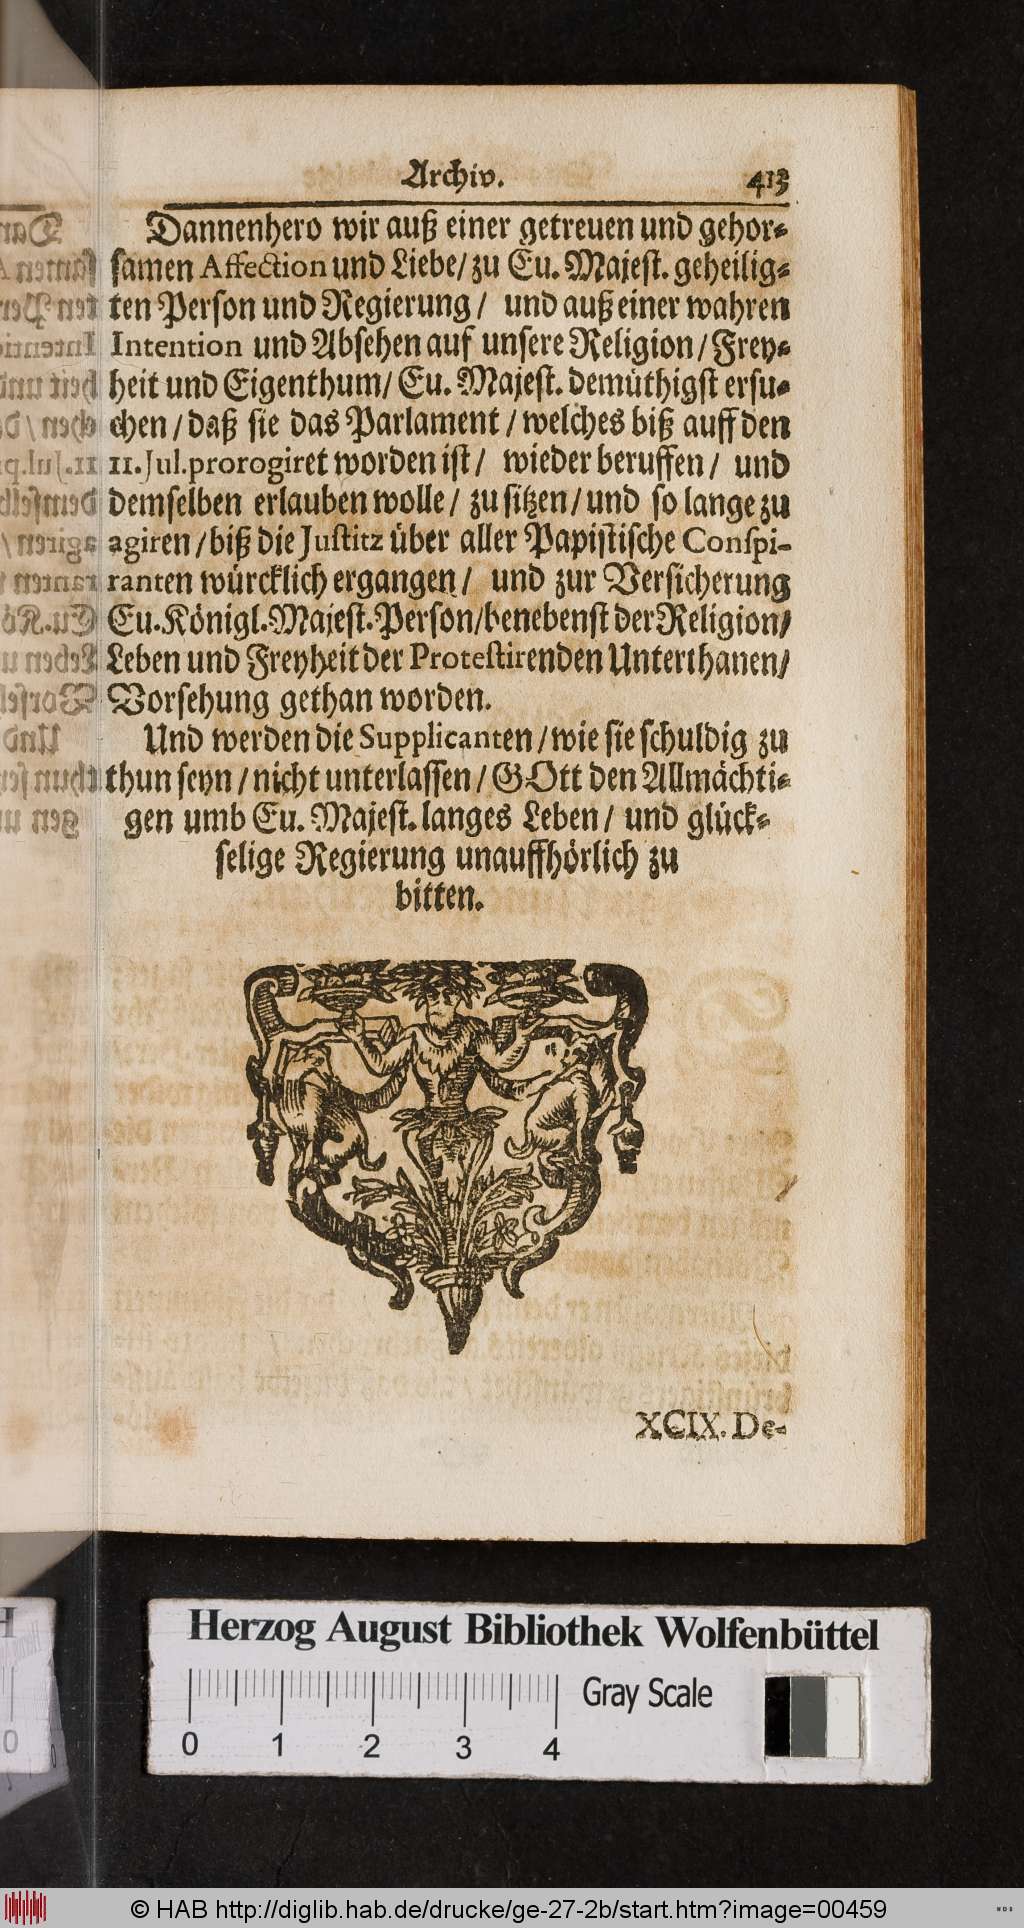 Archiv. 413
Dannenhero wir auß einer getreuen und gehor-
samen Affection und Liebe/ zu Eu. Majest. geheilig-
ten Person und Regierung/ und auß einer wahren
Intention und Absehen auf unsere Religion/ Frey-
heit und Eigenthum/ Eu. Majest. demüthigst ersu-
chen/ daß sie das Parlament/ welches biß auff den
11. Jul. prorogiret worden ist/ wieder beruffen/ und
demselben erlauben wolle/ zu sitzen/ und so lange zu
agiren/ biß die Justitz über aller Papistische Conspi-
ranten würcklich ergangen/ und zur Versicherung
Eu. Königl. Majest. Person/ benebenst der Religion/
Leben und Freyheit der Protestirenden Unterthanen/
Vorsehung gethan worden.
Und werden die Supplicanten/ wie sie schuldig zu
thun seyn/ nicht unterlassen/ GOtt den Allmächti-
gen umb Eu. Majest. langes Leben/ und glück-
selige Regierung unauffhörlich zu
bitten.
XCIX. De-
Herzog August Bibliothek Wolfenbüttel
Gray Scale
0 1 2 3 4
© HAB http://diglib.hab.de/drucke/ge-27-2b/start.htm?image=00459